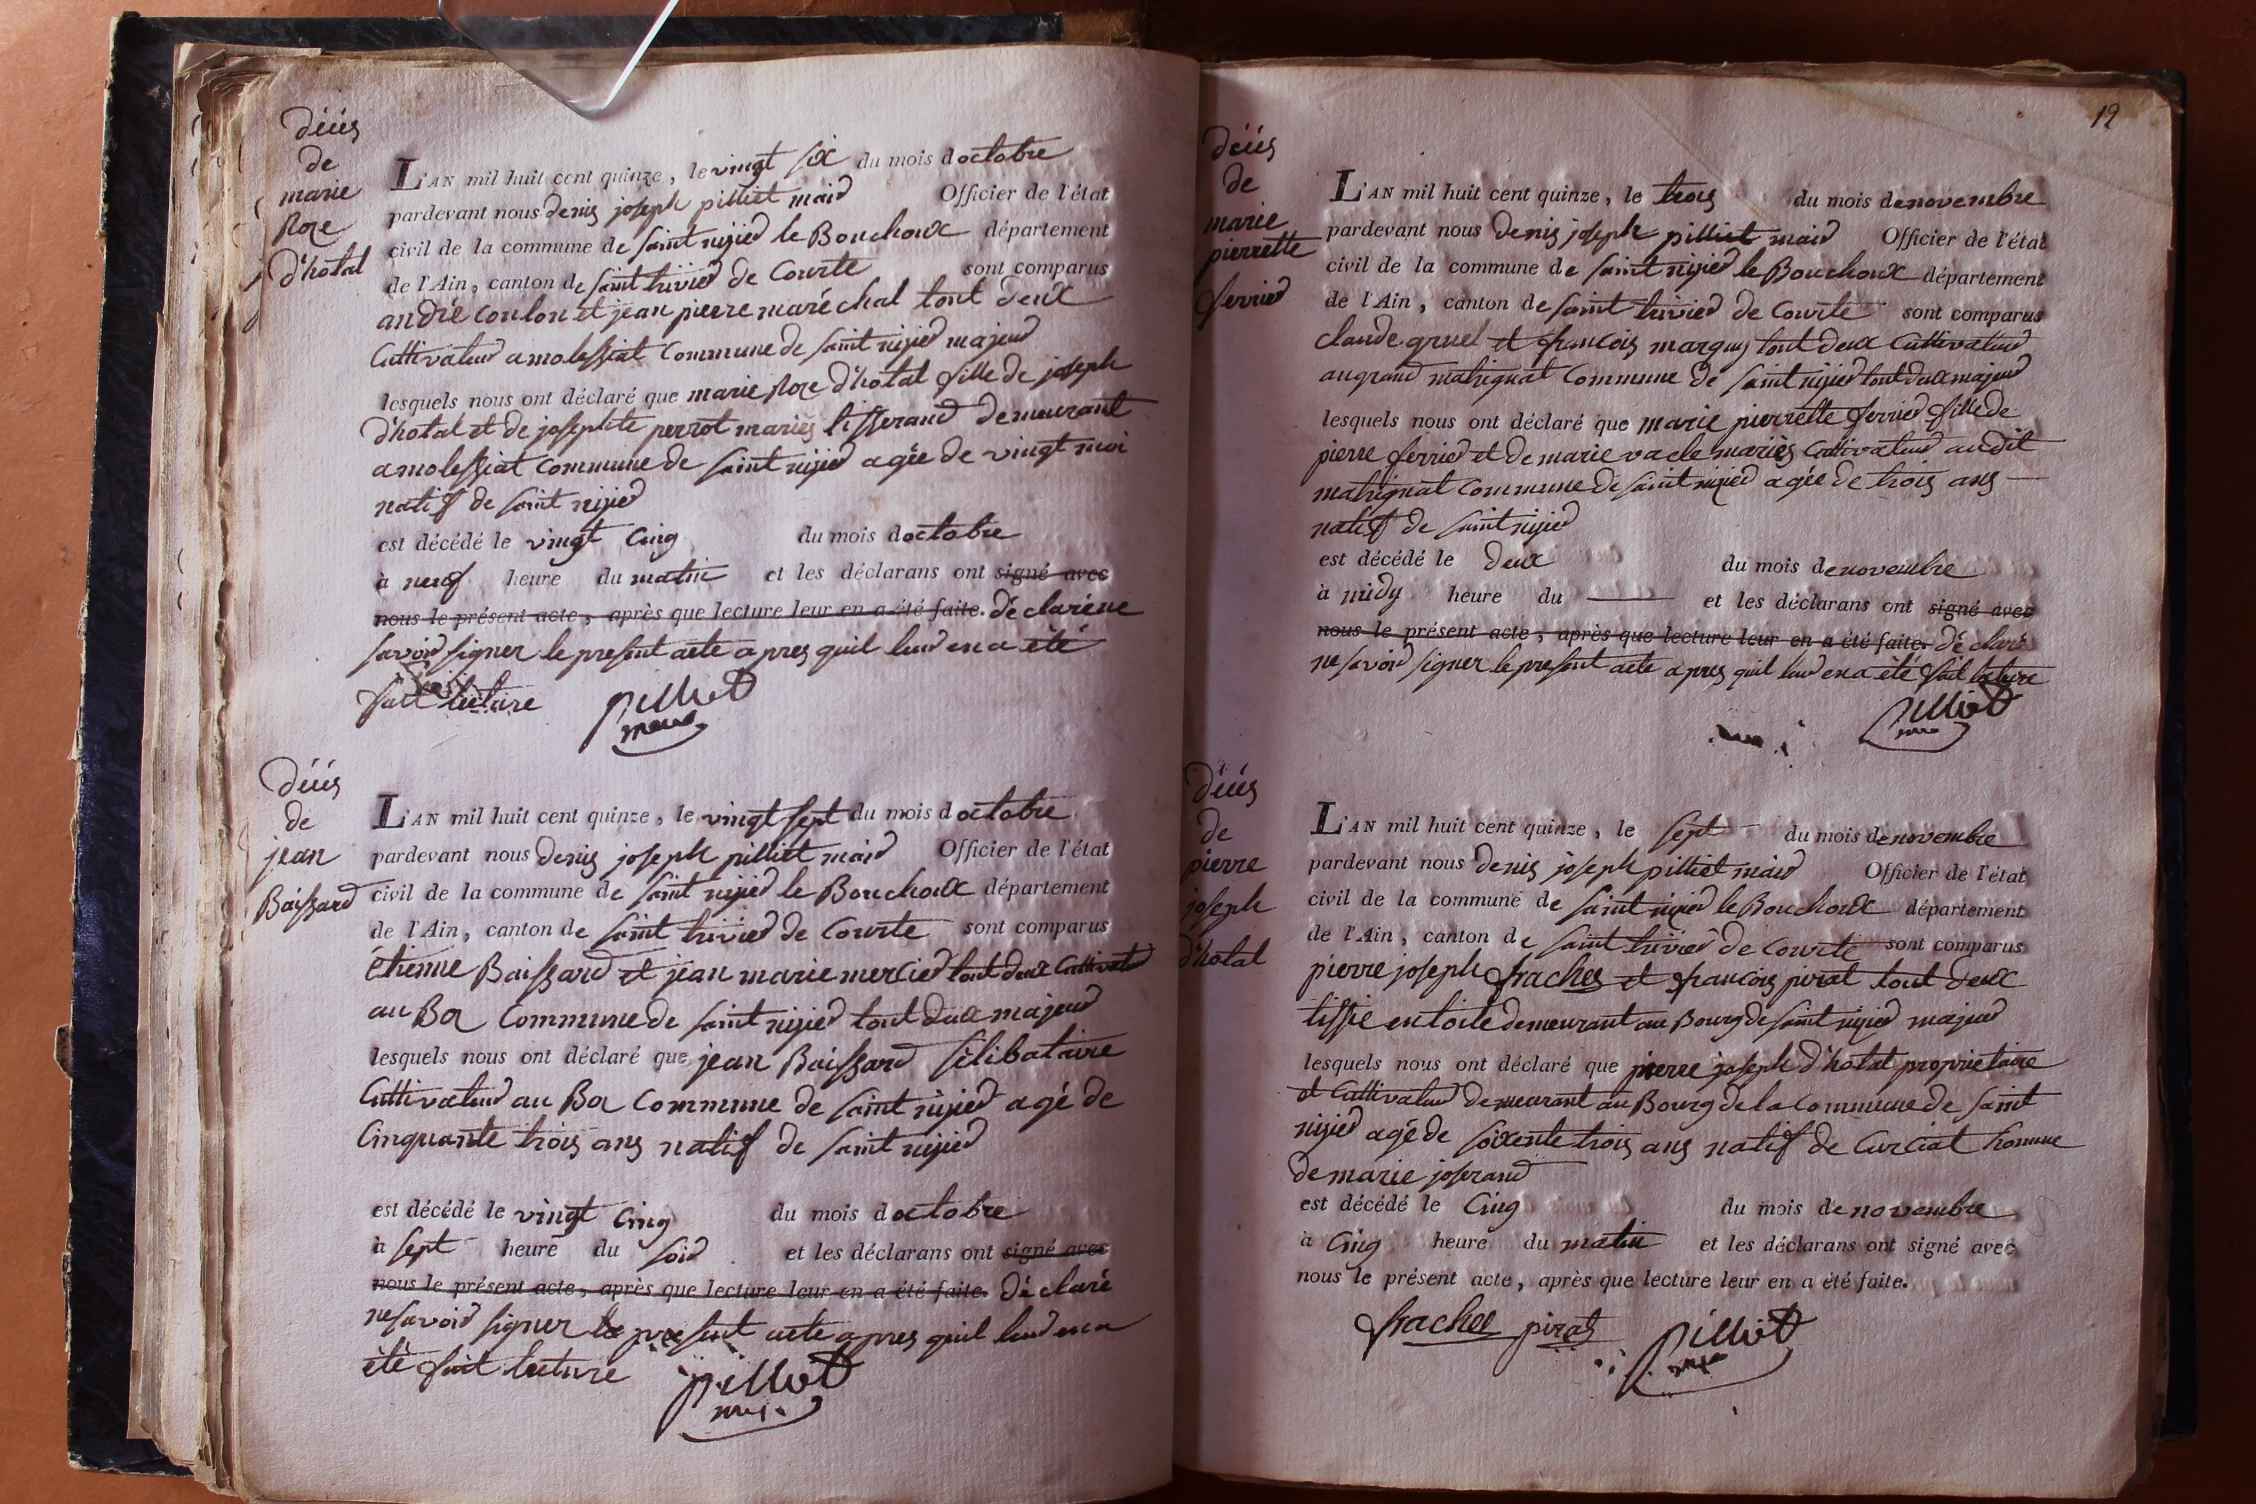 déces
de
marie
Roze
d'hotal
L'AN mil huit cent quinze, le vingt six du mois d octobre
pardevant nous denis joseph pilliet maire Officier de l'état
civil de la commune de saint nizier le Bouchoux département
de l'Ain, canton de saint trivier de Courte sont comparus
andré Coulon et jean pierre maréchal tout deux
Cultivateur a molessiat Commune de saint nizier majeur
lesquels nous ont déclaré que marie Roze d'hotal fille de joseph
d'hotal et de josephte perrot mariés tisserand demeurant
a molessiat Commune de saint nizier agée de vingt moi
natif de saint nizier
est décédé le vingt Cinq du mois d octobre
à neuf heure du matin et les déclarans ont signé avec
nous le présent acte, après que lecture leur en a été faite. déclaré ne
savoir signer le present acte apres quil leur en a été
fait lecture pilliet
maire
déces
de
jean
Baissard
L'AN mil huit cent quinze, le vingt sept du mois d octobre
pardevant nous denis joseph pilliet maire Officier de l'état
civil de la commune de saint nizier le Bouchoux département
de l'Ain, canton de saint trivier de Courte sont comparus
étienne Baissard et jean marie mercier tout deux Cultivateur
au Commune de saint nizier tout deux majeur
lesquels nous ont déclaré que jean Baissard sélibataire
Cultivateur au Commune de saint nizier agé de
Cinquante trois ans natif de saint nizier
est décédé le vingt Cinq du mois d octobre
à sept heure du soir et les déclarans ont signé avec
nous le présent acte, après que lecture leur en a été faite. déclaré
ne savoir signer le present acte apres quil leur en a
été fait lecture pilliet
maire
12
déces
de
marie
pierrette
ferrier
L'AN mil huit cent quinze, le trois du mois de novembre
pardevant nous denis joseph pilliet maire Officier de l'état
civil de la commune de saint nizier le Bouchoux département
de l'Ain, canton de saint trivier de Courte sont comparus
claude gruel et francois marquis tout deux Cultivateur
au grand matrignat Commune de saint nizier tout deux majeur
lesquels nous ont déclaré que marie pierrette ferrier fille de
pierre ferrier et de marie vacle mariés Cultivateur audit
matrignat Commune de saint nizier agée de trois ans
natif de saint nizier
est décédé le deux du mois de novembre
à midy heure du et les déclarans ont signé avec
nous le présent acte, après que lecture leur en a été faite. déclaré
ne savoir signer le present acte apres quil leur en a été fait lecture
pilliet
maire
déces
de
pierre
joseph
d'hotal
L'AN mil huit cent quinze, le sept du mois de novembre
pardevant nous denis joseph pilliet maire Officier de l'état
civil de la commune de saint nizier le Bouchoux département
de l'Ain, canton de saint trivier de Courte sont comparus
pierre joseph frachet et francois pirat tout deux
tissie en toile demeurant au Bourg de saint nizier majeur
lesquels nous ont déclaré que pierre joseph d'hotal proprietaire
et Cultivateur demeurant au Bourg de la Commune de saint
nizier agé de soixente trois ans natif de Curciat homme
de marie joserand
est décédé le Cinq du mois de novembre
à Cinq heure du matin et les déclarans ont signé avec
nous le présent acte, après que lecture leur en a été faite.
frachet pirat pilliet
maire